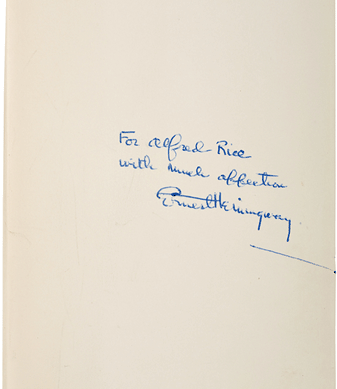 For Alfred Rice
with much affection
Ernest Hemingway